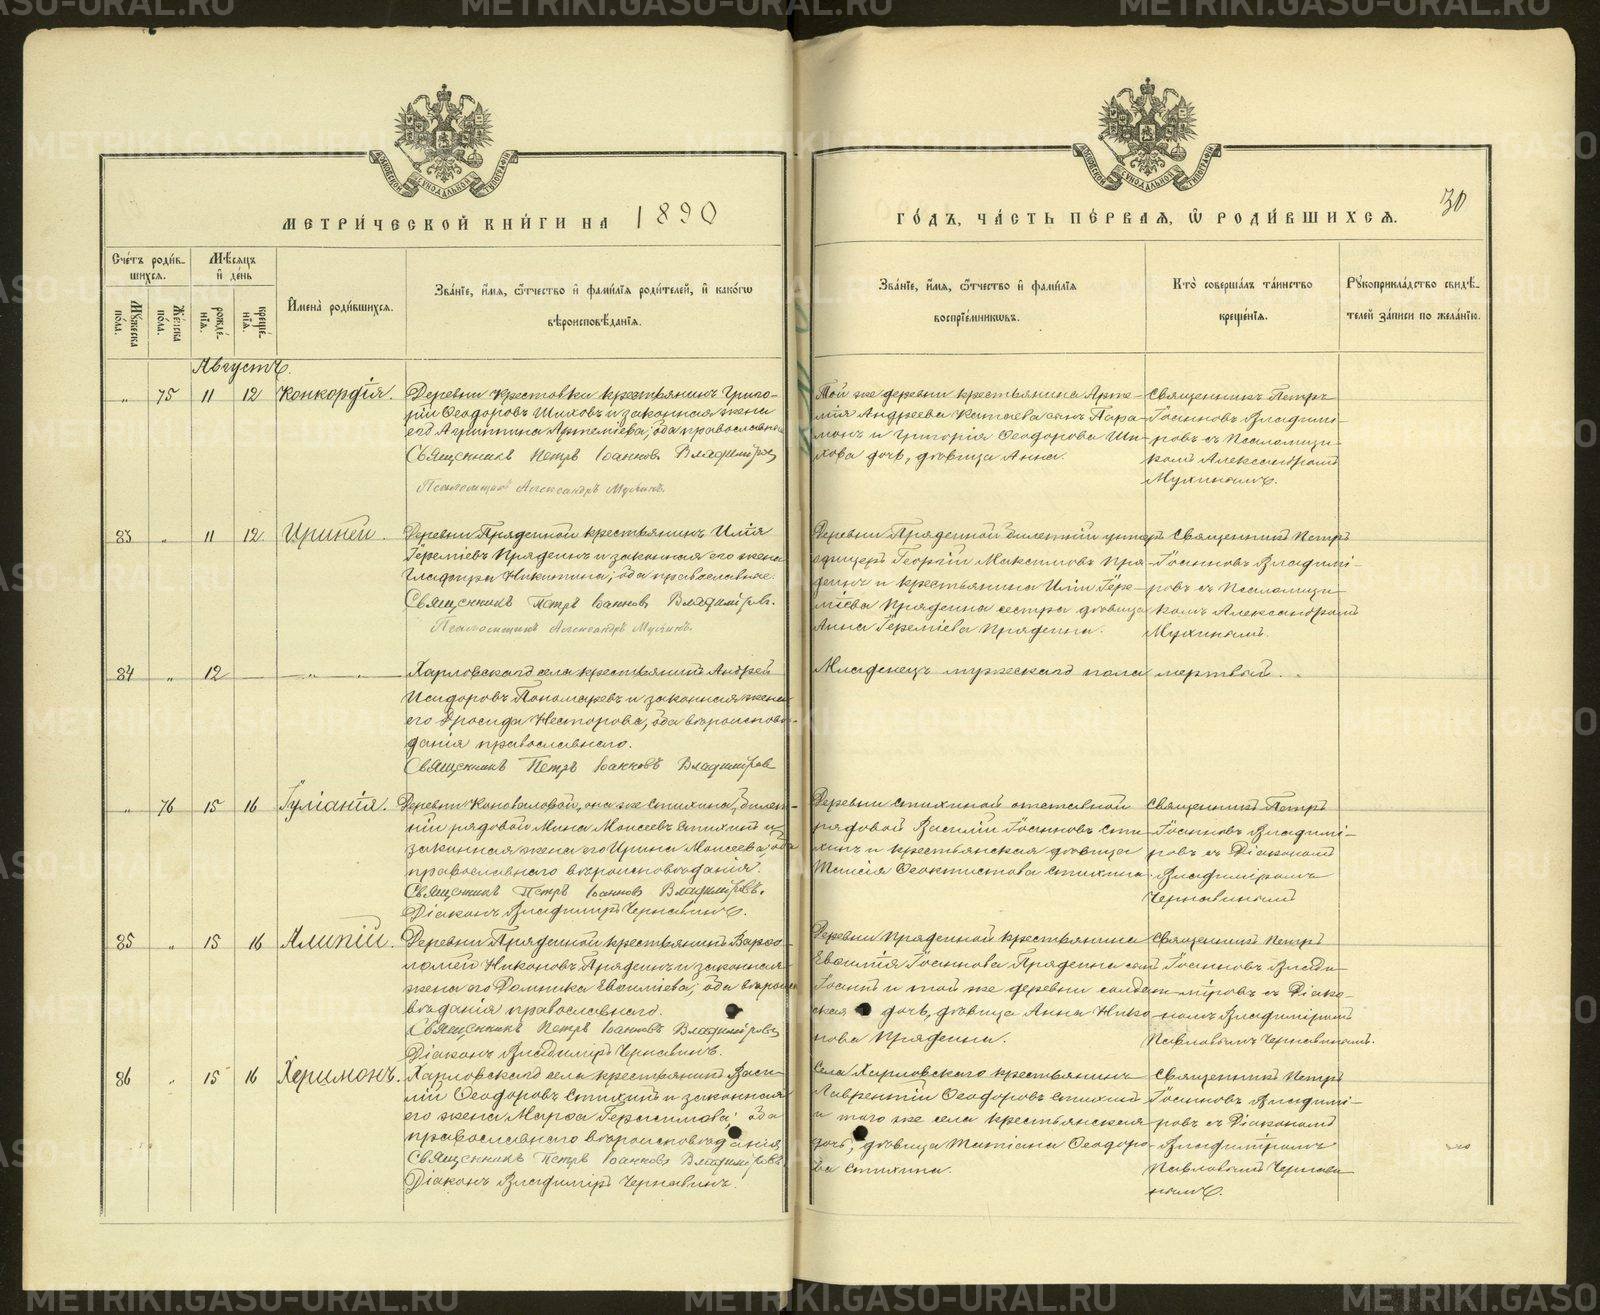 МЕТРИ́ЧЕСКОЙ КНИ́ГИ НА 1890
ГО́ДЪ, ЧА́СТЬ ПЕ́РВАЯ, Ѡ РОДИ́ВШИХСЯ.
30
Сче́тъ роди́в-
шихся.
Мѣ́сяцъ
и де́нь
Имена̀ роди́вшихся.
Зва́нїе, и́мя, ѻ́тчество и фами́лїя роди́телей, и како́гѡ
вѣроисповѣ́данїя.
Мꙋ́жеска
по́ла.
Же́нска
по́ла.
рожде́-
нїя.
креще́-
нїя.
Зва́нїе, и́мя, ѻ́тчество и фами́лїя
воспрїе́мникѡвъ.
Кто̀ соверша́лъ та́инство
креще́нїя.
Рꙋкоприкла́дство свидѣ́-
телей за́писи по жела́нїю.
Августъ.
„ 75 11 12 Конкордія.
Деревни Крестовки крестьянинъ Григо-
рій Ѳеодоровъ Шиховъ и законная жена
его Агриппина Артеміева, оба православные
Священникъ Петръ Іоанновъ Владиміровъ
Псаломщикъ Александръ Мухинъ.
Той же деревни крестьянина Арте-
мія Андреева Катаева сынъ Пара-
монъ и Григорія Ѳеодорова Ши-
хова дочь, дѣвица Анна.
Священникъ Петръ
Іоанновъ Владимі-
ровъ съ Псаломщи-
комъ Александромъ
Мухинымъ.
83 „ 11 12 Ириней.
Деревни Пряденной крестьянинъ Илія
Іереміевъ Пряденъ и законная его жена
Глафира Никитина, оба православные.
Священникъ Петръ Іоанновъ Владиміровъ.
Псаломщикъ Александръ Мухинъ.
Деревни Пряденной билетный унтеръ
офицеръ Георгій Максимовъ Пря-
денъ и крестьянина Иліи Іере-
міева Пряденна сестра дѣвица
Анна Іереміева Пряденна.
Священникъ Петръ
Іоанновъ Владимі-
ровъ съ Псаломщи-
комъ Александромъ
Мухинымъ.
84 „ 12 — „ — „ —
Харловскаго села крестьянинъ Андрей
Исидоровъ Пономаревъ и законная жена
его Дросида Несторова, оба вѣроиспове-
данія православнаго.
Священникъ Петръ Іоанновъ Владиміров
Младенецъ мужескаго пола мертвый.
„ 76 15 16 Іуліанія.
Деревни Коноваловой, она же Стихина, билет-
ный рядовой Мина Моисеевъ Стихинъ и
законная жена его Ирина Моисеева, оба
православнаго вѣроисповѣданія.
Священникъ Петръ Іоанновъ Владиміровъ.
Діаконъ Владиміръ Чернавинъ.
Деревни Стихиной отставной
рядовой Василій Іоанновъ Сти-
хинъ и крестьянская дѣвица
Таисія Ѳеоктистова Стихина.
Священникъ Петръ
Іоанновъ Владимі-
ровъ съ Діакономъ
Владиміромъ
Чернавинымъ
85 „ 15 16 Алипій.
Деревни Пряденной крестьянинъ Варѳо-
ломей Никоновъ Пряденъ и законная
жена его Домника Евѳиміева, оба вѣроис-
вѣданія православнаго.
Священникъ Петръ Іоанновъ Владиміровъ
Діаконъ Владиміръ Чернавинъ.
Деревни Пряденной крестьянина
Евѳимія Іоаннова Пряденна сынъ
Іоаннъ и той же деревни солдат-
ская дочь, дѣвица Анна Нико-
нова Пряденна.
Священникъ Петръ
Іоанновъ Влади-
міровъ съ Діако-
номъ Владиміромъ
Павловымъ Чернавинымъ.
86 „ 15 16 Херимонъ.
Харловскаго села крестьянинъ Васи-
лій Ѳеодоровъ Стихинъ и законная
его жена Марѳа Герасимова, оба
православнаго вѣроисповѣданія
Священникъ Петръ Іоанновъ Владиміровъ
Діаконъ Владиміръ Чернавинъ.
Села Харловскаго крестьянинъ
Лаврентій Ѳеодоровъ Стихинъ
и того же села крестьянская
дочь, дѣвица Татіана Ѳеодоро-
ва Стихина.
Священникъ Петръ
Іоанновъ Владимі-
ровъ съ Діакономъ
Владиміромъ
Павловымъ Чернави-
нымъ.
METRIKI.GASO-URAL.RU